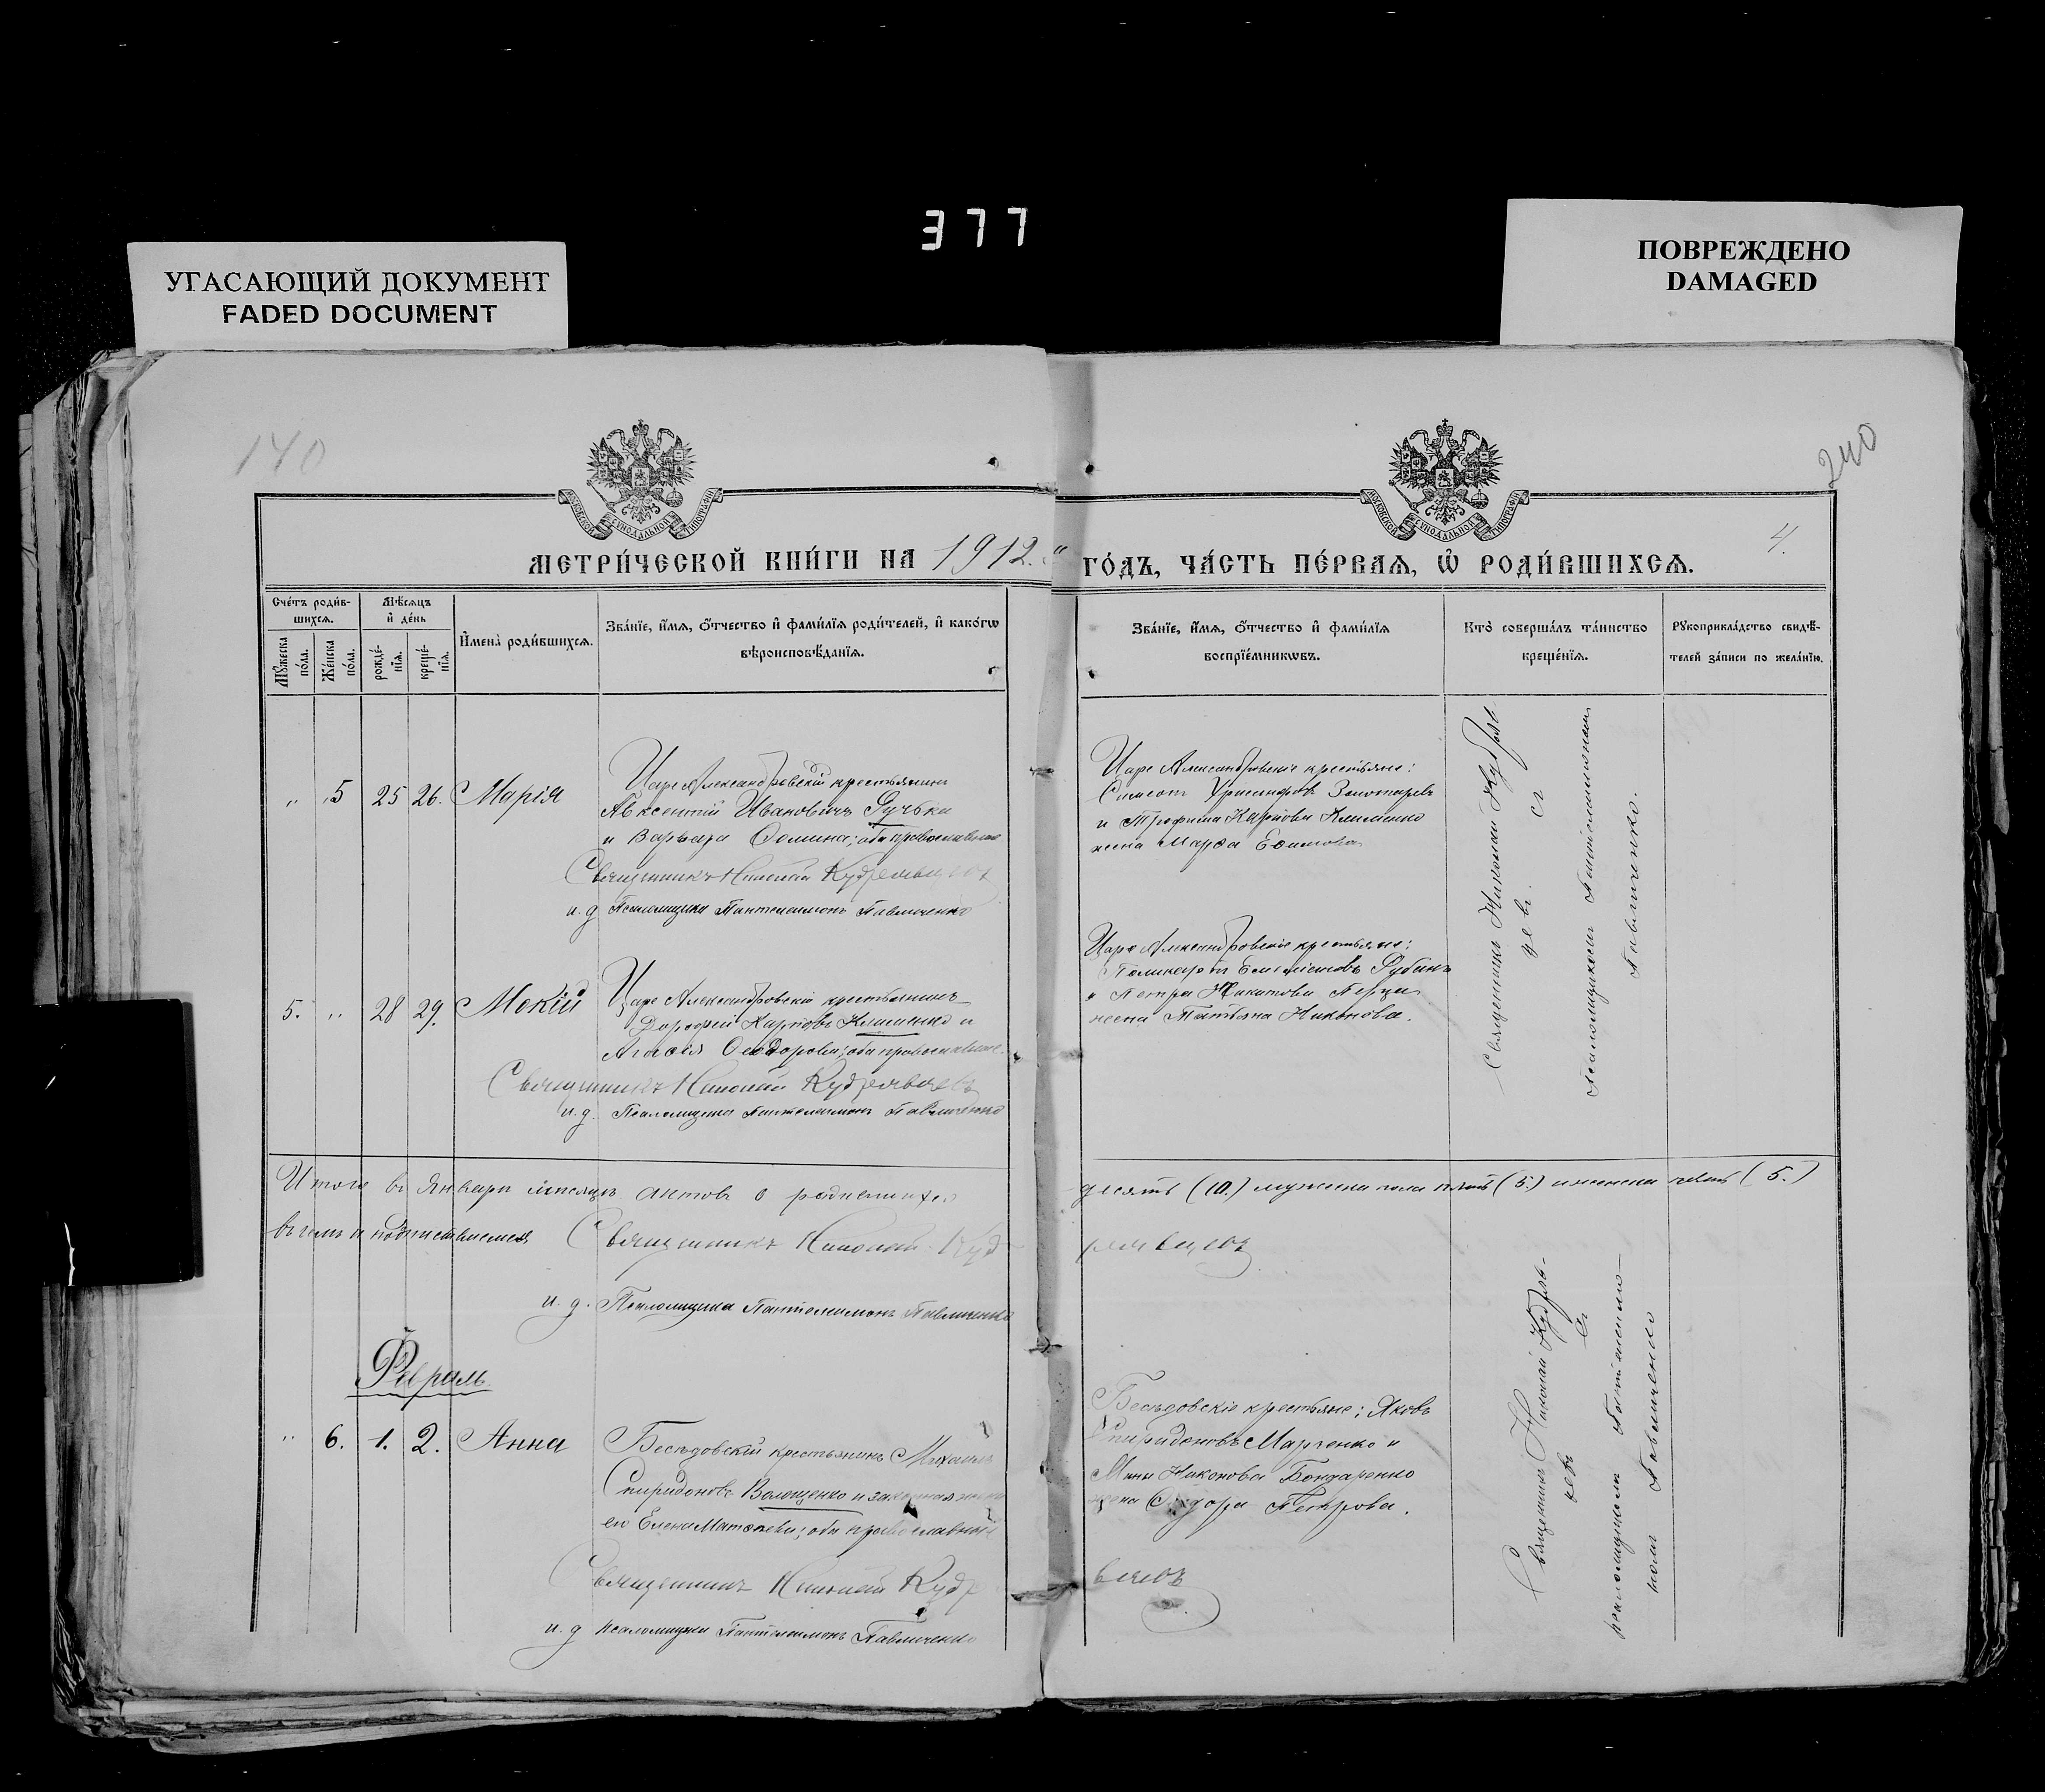 377
УГАСАЮЩИЙ ДОКУМЕНТ
FADED DOCUMENT
ПОВРЕЖДЕНО
DAMAGED
140
240
МОСКОВСКОЙ СУНОДАЛЬНОЙ ТИПОГРАФІИ
МОСКОВСКОЙ СУНОДАЛЬНОЙ ТИПОГРАФІИ
4.
МЕТРИ́ЧЕСКОЙ КНИ́ГИ НА 1912.
ГО́ДЪ, ЧА́СТЬ ПЕ́РВАѦ, Ѡ҆ РОДИ́ВШИХСѦ.
Сче́тъ роди́в-
шихсѧ.
Мꙋ́жеска по́ла.
Же́нска по́ла.
Мѣ́сѧцъ
и҆ де́нь
рожде́-
нїѧ.
креще́-
нїѧ.
И҆мена̀ роди́вшихсѧ.
Зва́нїе, и҆́мѧ, ѻ҆́тчество и҆ фами́лїѧ роди́телей, и҆ како́гѡ
вѣроисповѣ́данїѧ.
Зва́нїе, и҆́мѧ, ѻ҆́тчество и҆ фами́лїѧ
воспрїе́мникѡвъ.
Кто̀ соверша́лъ та́инство
креще́нїѧ.
Рꙋкоприкла́дство свидѣ́-
телей за́писи по жела́нїю.
" 5 25 26. Марія
Царе Александровскій крестьянинъ
Авксентій Ивановичъ
и Варвара Ѳомина; оба православные
Священникъ Николай Кудрявцевъ
и. д. Псаломщика Пантелеимонъ Павличенко
Царе Александровскіе крестьяне:
и Трофима Карпова Клименко
жена Марѳа Ефимова
Священникъ Николай Кудряв
цевъ. съ
Псаломщикомъ Пантелеимономъ
Павличенко.
5. " 28 29. Мокій
Царе Александровскій крестьянинъ
Дорофей Карповъ Клименко и
Агаѳія Ѳеодорова; оба православные.
Священникъ Николай Кудрявцевъ
и. д. Псаломщика Пантелеимонъ Павличенко
Царе Александровскіе крестьяне:
Поликарпъ Рубанъ
и Петра Никитова
жена Татьяна Никонова.
Итого въ Январѣ мѣсяцѣ актовъ о родившихся
десять (10.) мужска пола пять (5.) и женска пять (5.)
въ чемъ и подписываемся
Священникъ Николай Куд
рявцевъ
и. д. Псаломщика Пантелеимонъ Павличенко
Февраль
" 6. 1. 2. Анна
Бесѣдовскій крестьянинъ Михаилъ
Спиридоновъ Волощенко и законная жена
его Елена Матѳеева; оба православные
Священникъ Николай Кудр
вцевъ
и. д. псаломщика Пантелеимонъ Павличенко
Бесѣдовскіе крестьяне; Яковъ
Спиридоновъ Марченко и
Мины Никонова Бондаренко
жена Петрова.
Священникъ Николай Кудряв-
цевъ съ
псаломщикомъ Пантелеимо-
номъ Павличенко